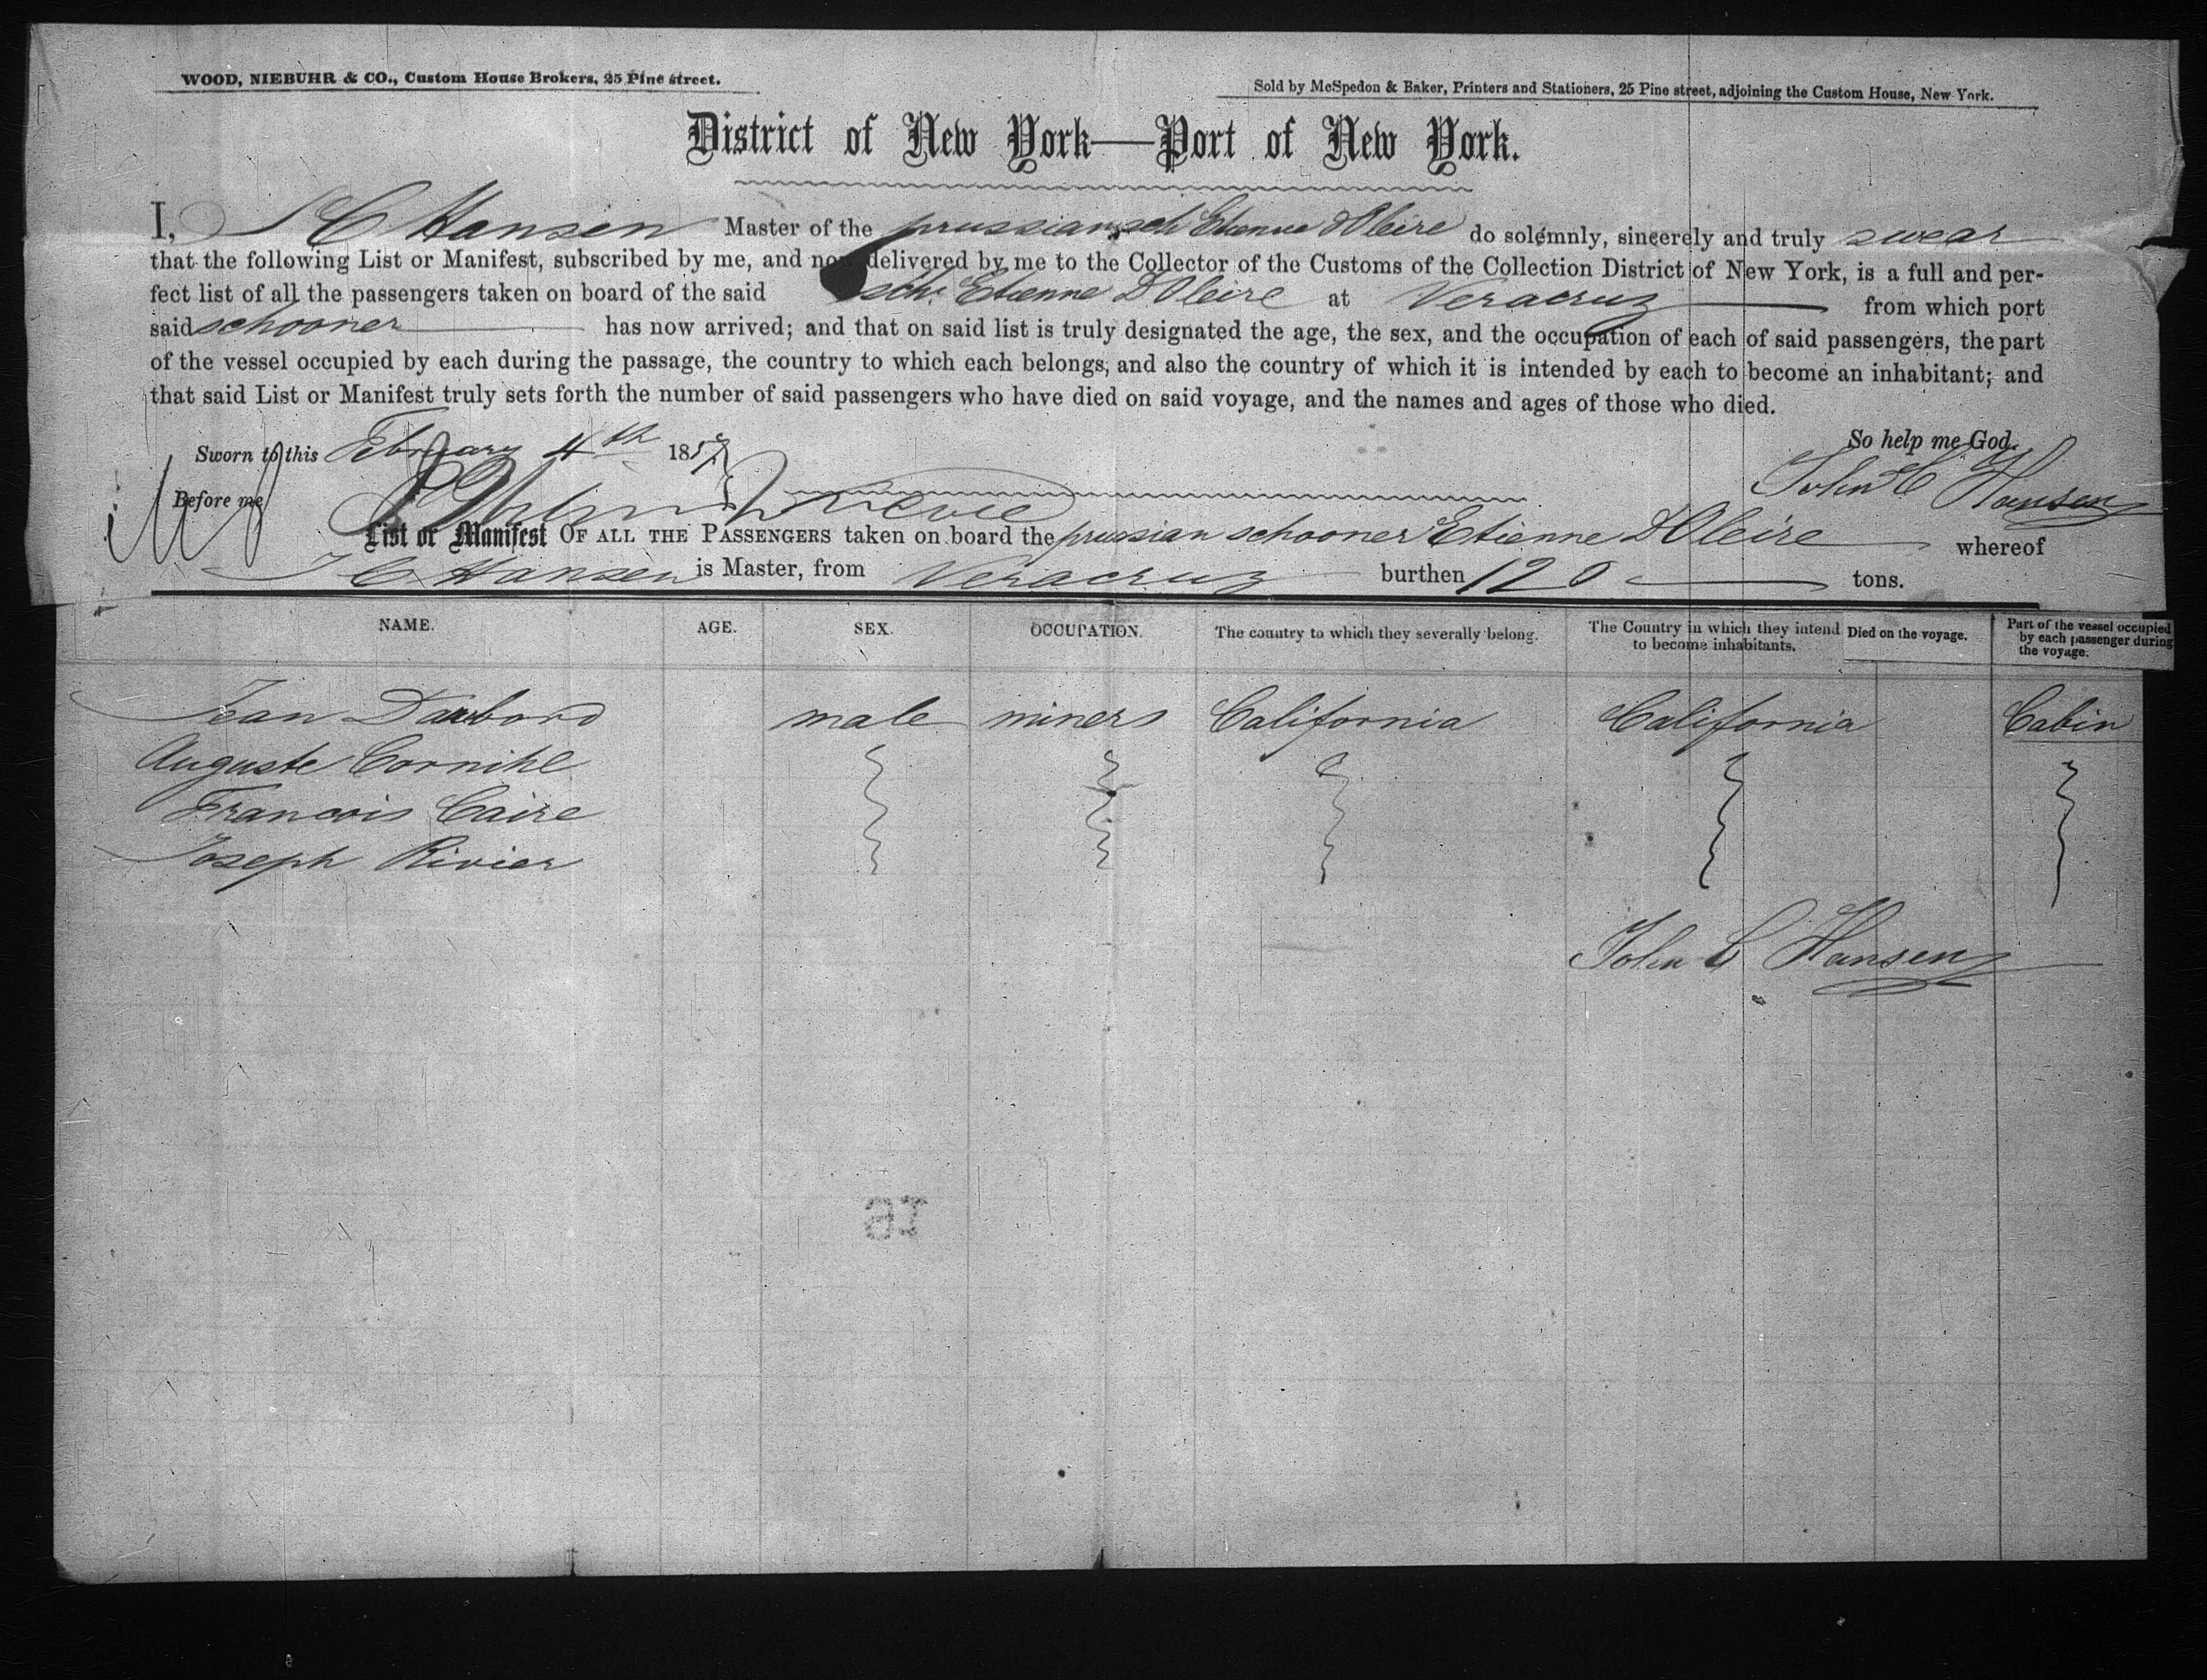 WOOD, NIEBUHR & CO., Custom House Brokers, 25 Pine street.
Sold by McSpedon & Baker, Printers and Stationers, 25 Pine street, adjoining the Custom House, New York.
District of New York—Port of New York.
I, J C Hansen Master of the prussian sch Etienne D'Oleire do solemnly, sincerely and truly swear
that the following List or Manifest, subscribed by me, and now delivered by me to the Collector of the Customs of the Collection District of New York, is a full and per-
fect list of all the passengers taken on board of the said sch. Etienne D'Oleire at Veracruz from which port
said schooner has now arrived; and that on said list is truly designated the age, the sex, and the occupation of each of said passengers, the part
of the vessel occupied by each during the passage, the country to which each belongs, and also the country of which it is intended by each to become an inhabitant; and
that said List or Manifest truly sets forth the number of said passengers who have died on said voyage, and the names and ages of those who died.
Sworn to this February 4th 1857
So help me God.
Before me
John C Hansen
List or Manifest OF ALL THE PASSENGERS taken on board the prussian schooner Etienne D'Oleire whereof
J C Hansen is Master, from Veracruz burthen 120 tons.
NAME. AGE. SEX. OCCUPATION. The country to which they severally belong. The Country in which they intend to become inhabitants. Died on the voyage. Part of the vessel occupied by each passenger during the voyage.
Jean Daubord male miners California California Cabin
Auguste Cornihl
Francois Caire
Joseph Rivier
John C Hansen